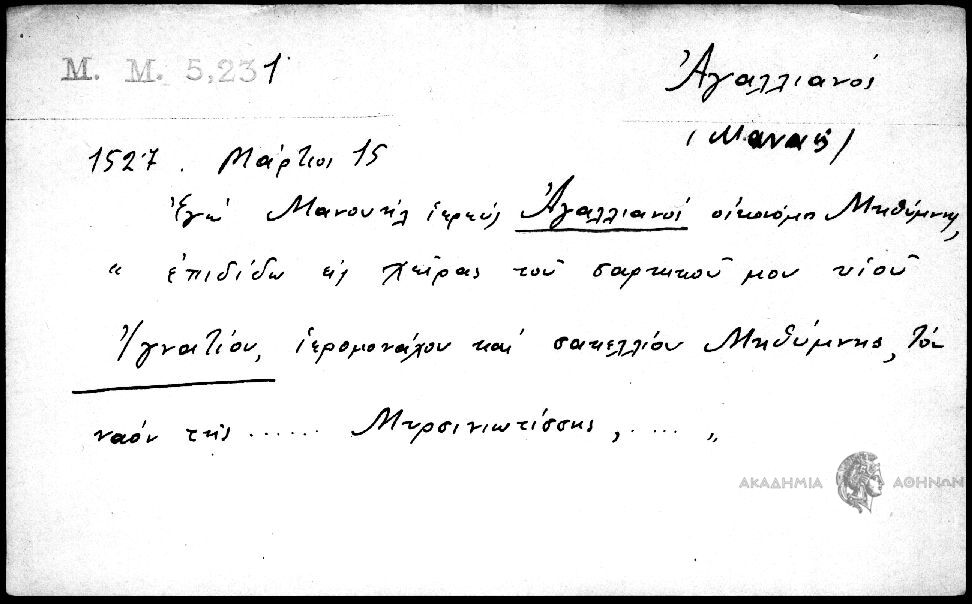 M. M. 5,231
Ἀγαλλιανός
(Μανουήλ)
1527. Μάρτιος 15
Ἐγώ Μανουήλ ἱερεύς Ἀγαλλιανός οἰκονόμος Μηθύμνης,
" ἐπιδίδω εἰς χεῖρας τοῦ σαρκικοῦ μου υἱοῦ
Ἰγνατίου, ἱερομονάχου καί σακελλίου Μηθύμνης, τόν
ναόν τῆς ...... Μυρσινιωτίσσης, .... "
ΑΚΑΔΗΜΙΑ ΑΘΗΝΩΝ